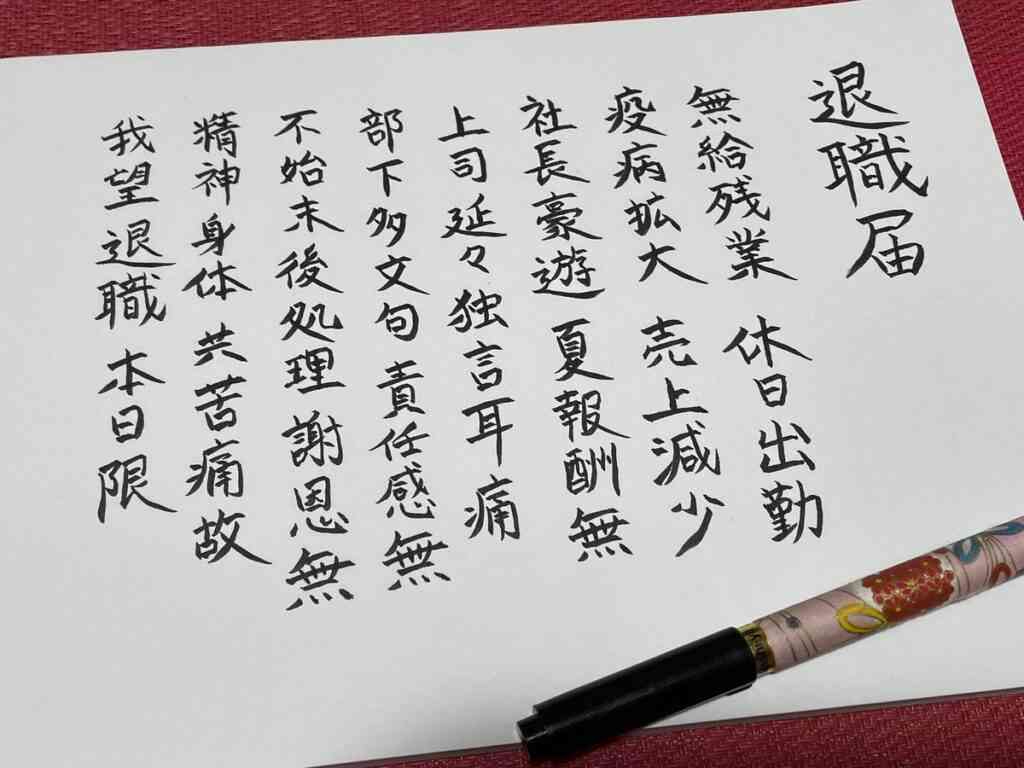 退職届
無給残業 休日出勤
疫病拡大 売上減少
社長豪遊 夏報酬無
上司延々 独言耳痛
部下多文句 責任感無
不始末後処理 謝恩無
精神身体 共苦痛故
我望退職 本日限